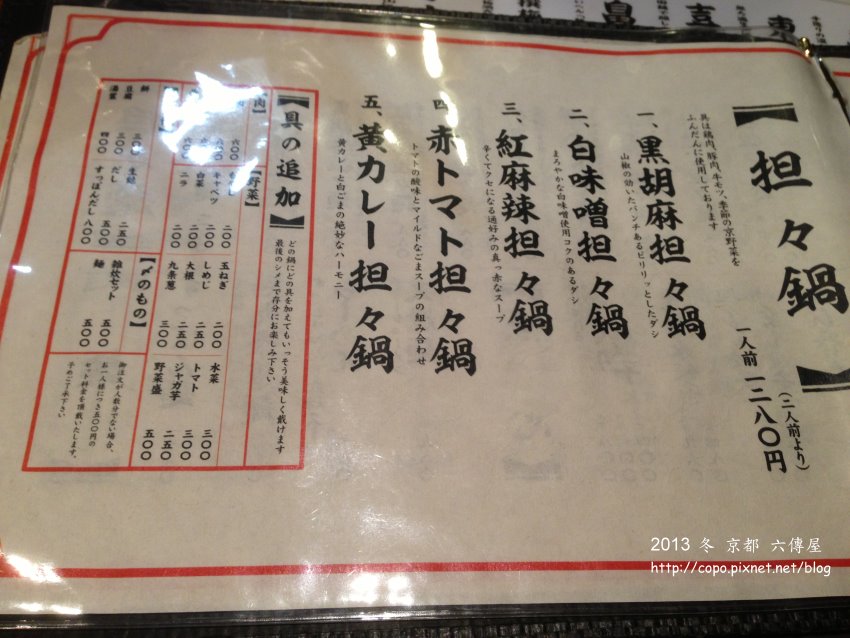 担々鍋
一人前 一二八〇円
(二人前より)
具は鶏肉、豚肉、牛モツ、季節の京野菜を
ふんだんに使用しております
一、黒胡麻担々鍋
山椒の効いたパンチあるピリリッとしたダシ
二、白味噌担々鍋
まろやかな白味噌使用コクのあるダシ
三、紅麻辣担々鍋
辛くてクセになる通好みの真っ赤なスープ
四、赤トマト担々鍋
トマトの酸味とマイルドなごまスープの組み合わせ
五、黄カレー担々鍋
黄カレーと白ごまの絶妙なハーモニー
【具の追加】
どの鍋にどの具を加えてもいっそう美味しく戴けます
最後のシメまで存分にお楽しみ下さい
肉】
六〇〇
【野菜】
キャベツ 二〇〇
白菜 二〇〇
ニラ 二〇〇
玉ねぎ 二〇〇
しめじ 二〇〇
大根 二五〇
九条葱 三〇〇
水菜 三〇〇
トマト 三〇〇
ジャガ芋 二五〇
野菜盛 五〇〇
餅 三〇〇
豆腐 三〇〇
湯葉 四〇〇
生麩 二五〇
だし 五〇〇
すっぽんだし 八〇〇
【〆のもの】
雑炊セット 五〇〇
麺 五〇〇
御注文が人数分でない場合、
お一人様につき五〇〇円の
セット料金を頂戴いたします。
予めご了承下さい
2013 冬 京都 六傳屋
http://copo.pixnet.net/blog